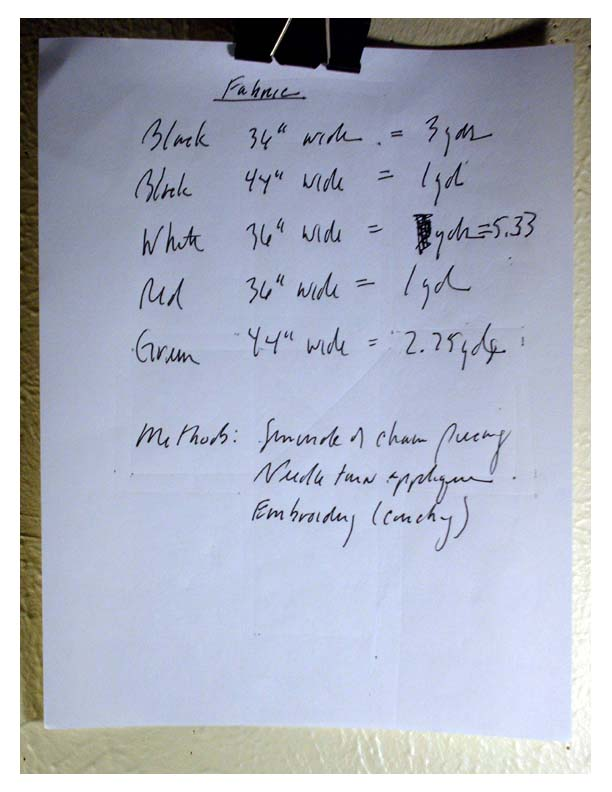 Fabric
Black 36" wide . = 3 yds
Black 44" wide = 1 yd
White 36" wide = yds = 5.33
Red 36" wide = 1 yd
Green 44" wide = 2.75 yds
Methods: chain piecing
Needle turn applique
Embroidery (couching)